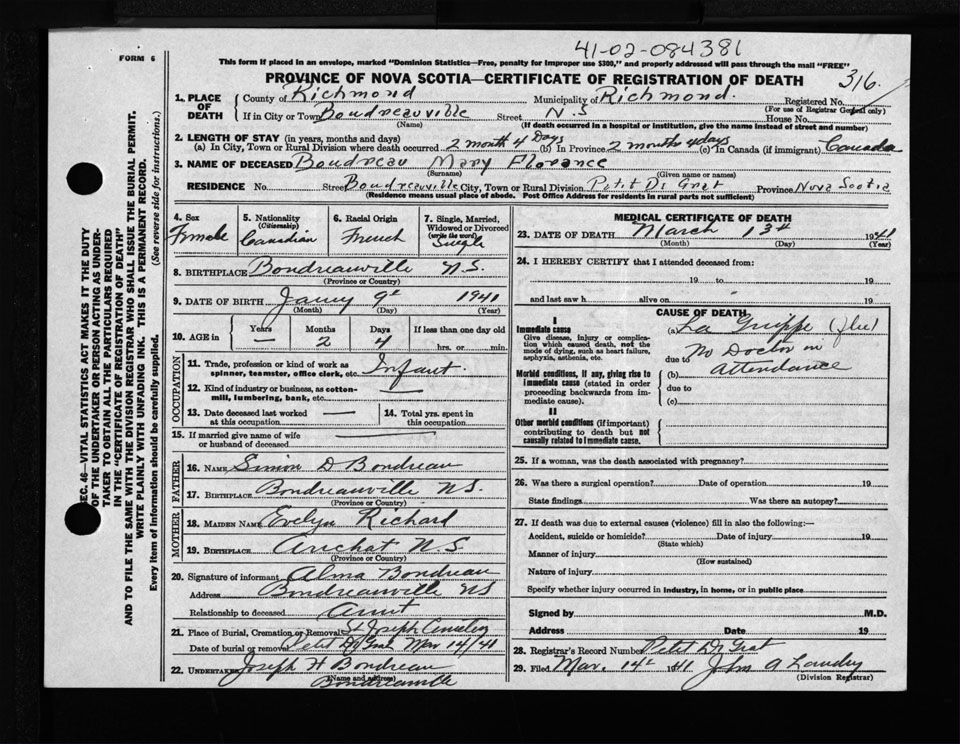 41-02-084381
FORM 6
This form if placed in an envelope, marked "Dominion Statistics—Free, penalty for improper use $300," and properly addressed will pass through the mail "FREE"
PROVINCE OF NOVA SCOTIA—CERTIFICATE OF REGISTRATION OF DEATH 316
1. PLACE OF DEATH County of Richmond Municipality of Richmond. Registered No.
(For use of Registrar General only)
If in City or Town Boudreauville Street N.S House No.
(Name) (If death occurred in a hospital or institution, give the name instead of street and number)
2. LENGTH OF STAY (in years, months and days)
(a) In City, Town or Rural Division where death occurred 2 month 4 Days (b) In Province 2 months 4 days (c) In Canada (if immigrant) Canada
3. NAME OF DECEASED Boudreau Mary Florance
(Surname) (Given name or names)
RESIDENCE No. Street Boudreauville City, Town or Rural Division Petit De Grat Province Nova Scotia
(Residence means usual place of abode. Post Office Address for residents in rural parts not sufficient)
4. Sex Female
5. Nationality (Citizenship) Canadian
6. Racial Origin French
7. Single, Married, Widowed or Divorced (write the word) Single
8. BIRTHPLACE Boudreauville N.S.
(Province or Country)
9. DATE OF BIRTH Jany 9th 1941
(Month) (Day) (Year)
10. AGE in Years — Months 2 Days 4 If less than one day old hrs. or min.
OCCUPATION
11. Trade, profession or kind of work as spinner, teamster, office clerk, etc. Infant.
12. Kind of industry or business, as cotton-mill, lumbering, bank, etc. —
13. Date deceased last worked at this occupation —
14. Total yrs. spent in this occupation
15. If married give name of wife or husband of deceased —
FATHER
16. NAME Simon D Boudreau
17. BIRTHPLACE Boudreauville NS.
MOTHER
18. MAIDEN NAME Evelyn Richard
19. BIRTHPLACE Arichat N.S.
(Province or Country)
20. Signature of informant Alma Boudreau
Address Boudreauville NS
Relationship to deceased Aunt
21. Place of Burial, Cremation or Removal St Joseph Cemetery
Date of burial or removal Petit De Grat Mar 14/41
22. UNDERTAKER Joseph H Boudreau
(Name and address)
Boudreauville
MEDICAL CERTIFICATE OF DEATH
23. DATE OF DEATH March 13th 1941
(Month) (Day) (Year)
24. I HEREBY CERTIFY that I attended deceased from:
19 to 19
and last saw h alive on 19
CAUSE OF DEATH
I
Immediate cause
Give disease, injury or complication which caused death, not the mode of dying, such as heart failure, asphyxia, asthenia, etc.
(a) La Grippe (flu)
due to No Doctor in
Morbid conditions, if any, giving rise to immediate cause (stated in order proceeding backwards from immediate cause).
(b) attendance
due to
(c)
II
Other morbid conditions (if important) contributing to death but not causally related to immediate cause.
25. If a woman, was the death associated with pregnancy?
26. Was there a surgical operation? Date of operation 19
State findings Was there an autopsy?
27. If death was due to external causes (violence) fill in also the following:—
Accident, suicide or homicide? Date of injury 19
(State which)
Manner of injury
(How sustained)
Nature of injury
Specify whether injury occurred in industry, in home, or in public place
Signed by M.D.
Address Date 19
28. Registrar's Record Number Petit De Grat
29. Filed Mar. 14th 1941 John A Landry
(Division Registrar)
SEC. 46—VITAL STATISTICS ACT MAKES IT THE DUTY
OF THE UNDERTAKER OR PERSON ACTING AS UNDER-
TAKER TO OBTAIN ALL THE PARTICULARS REQUIRED
IN THE "CERTIFICATE OF REGISTRATION OF DEATH"
AND TO FILE THE SAME WITH THE DIVISION REGISTRAR WHO SHALL ISSUE THE BURIAL PERMIT.
WRITE PLAINLY WITH UNFADING INK. THIS IS A PERMANENT RECORD.
Every item of information should be carefully supplied. (See reverse side for instructions.)